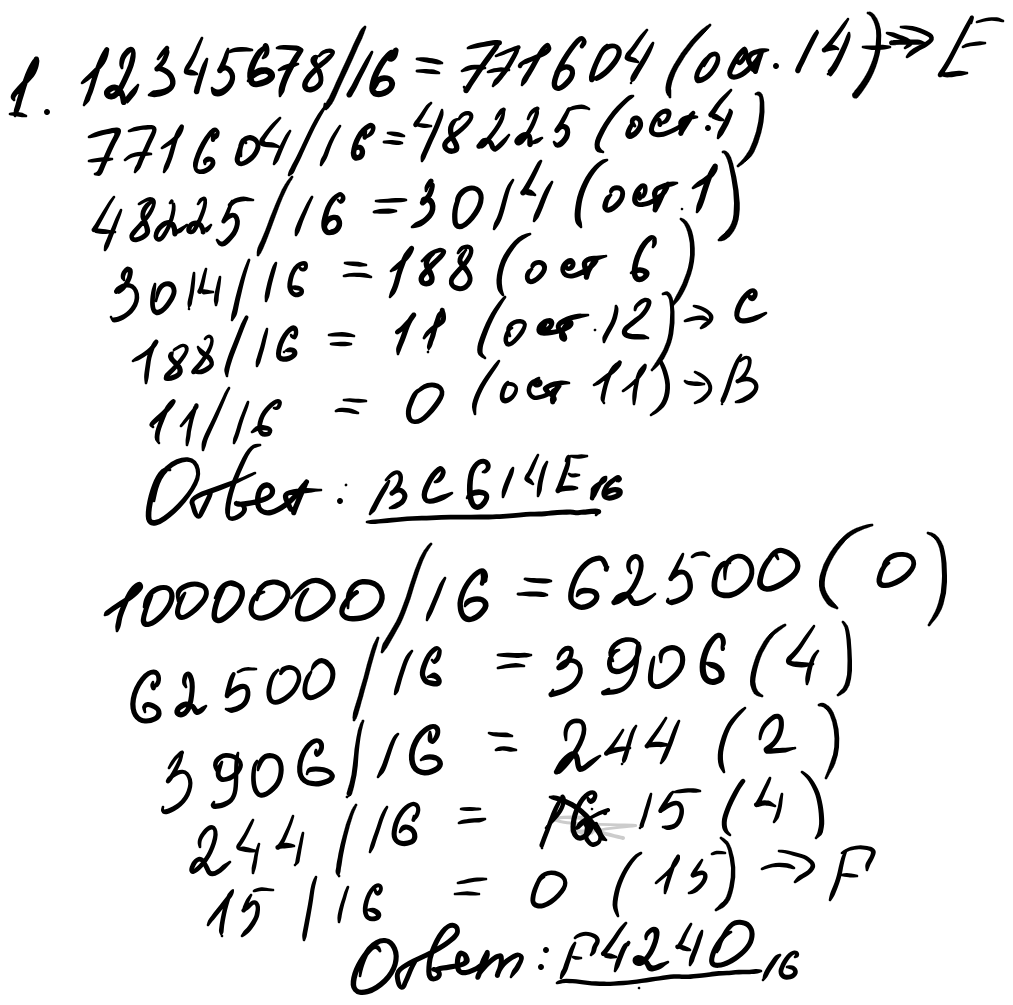 1. 12345678/16 = 771604 (ост. 14) → E
771604/16 = 48225 (ост. 4)
48225/16 = 3014 (ост 1)
3014/16 = 188 (ост 6)
188/16 = 11 (ост. 12) → C
11/16 = 0 (ост 11) → B
Ответ: BC614E₁₆
1000000/16 = 62500 (0)
62500/16 = 3906 (4)
3906/16 = 244 (2)
244/16 = 15 (4)
15/16 = 0 (15) → F
Ответ: F4240₁₆